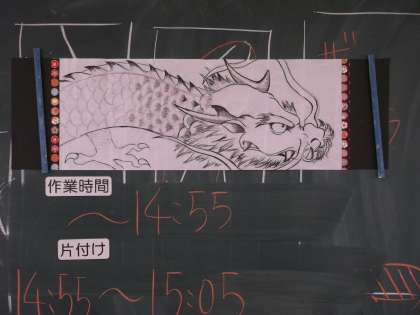 作業時間
～14:55
片付け
14:55～15:05